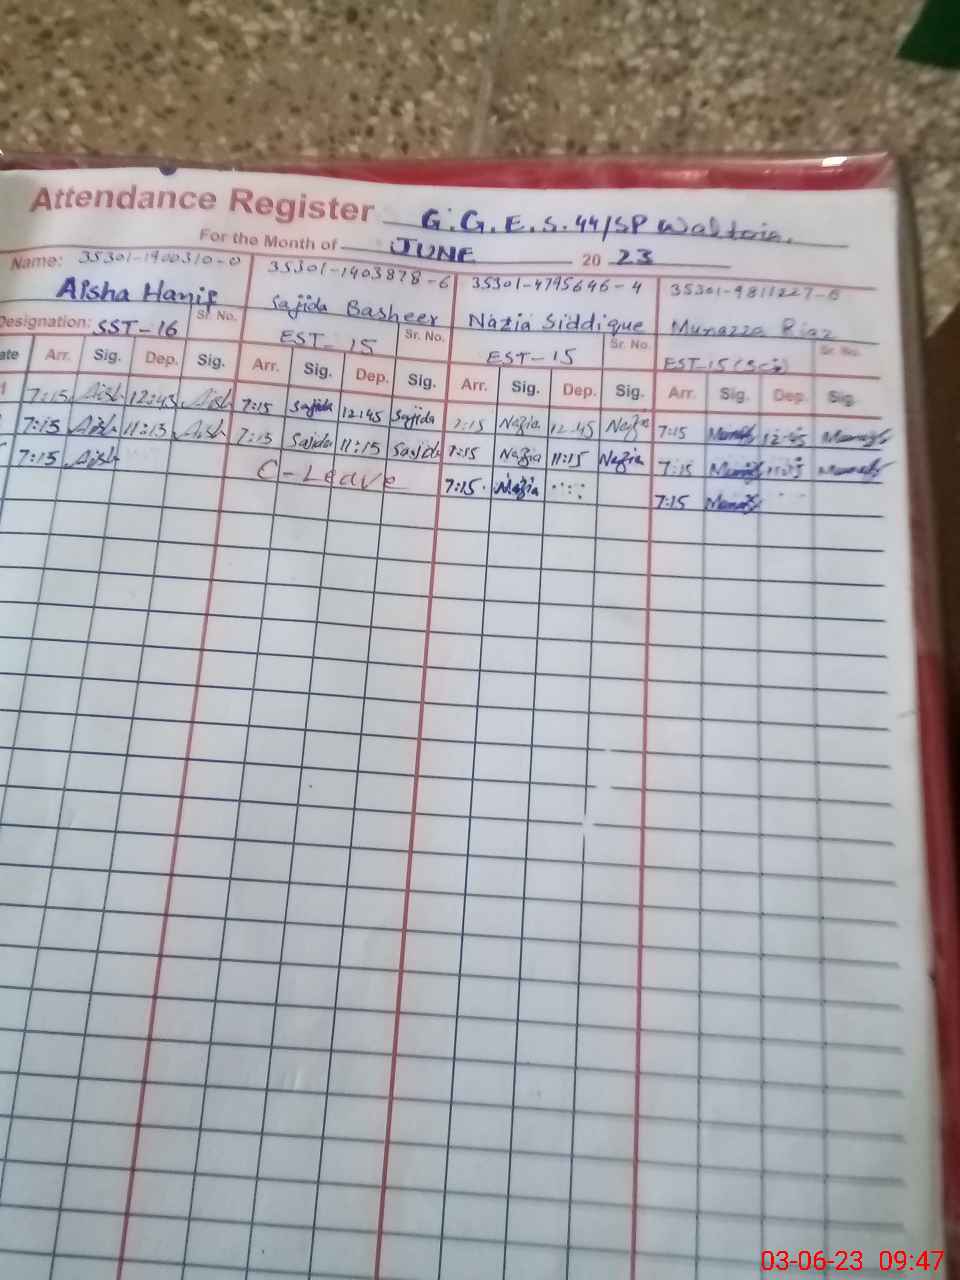 Attendance Register G.G.E.S. 44/SP
For the Month of JUNE 20 23
Name: 35301-1900310-0 35301-1403878-6 35301-4795646-4 35301-9811227-6
Aisha Hanif Sajida Basheer Nazia Siddique Munazza Riaz
Designation: SST-16 Sr. No. EST-15 Sr. No. EST-15 Sr. No. EST-15 (Sci) Sr. No.
ate Arr. Sig. Dep. Sig. Arr. Sig. Dep. Sig. Arr. Sig. Dep. Sig. Arr. Sig. Dep. Sig.
7:15 Aish 12:45 Aish 7:15 Sajida 12:45 Sajida 7:15 Nazia 12:45 Nazia 7:15 12:45
7:15 Aish 11:15 Aish 7:15 Sajida 11:15 Sajida 7:15 Nazia 11:15 Nazia 7:15
7:15 Aish C-Leave 7:15 Nazia 7:15
03-06-23 09:47